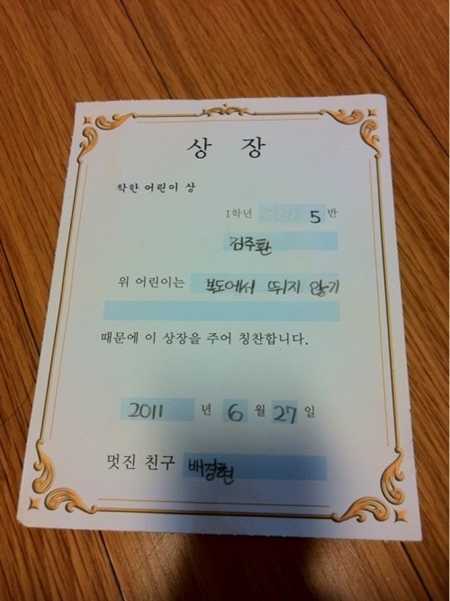 상 장
착한 어린이 상
1학년 5 반
김주환
위 어린이는 복도에서 뛰지 않기
때문에 이 상장을 주어 칭찬합니다.
2011 년 6 월 27 일
멋진 친구 배경현